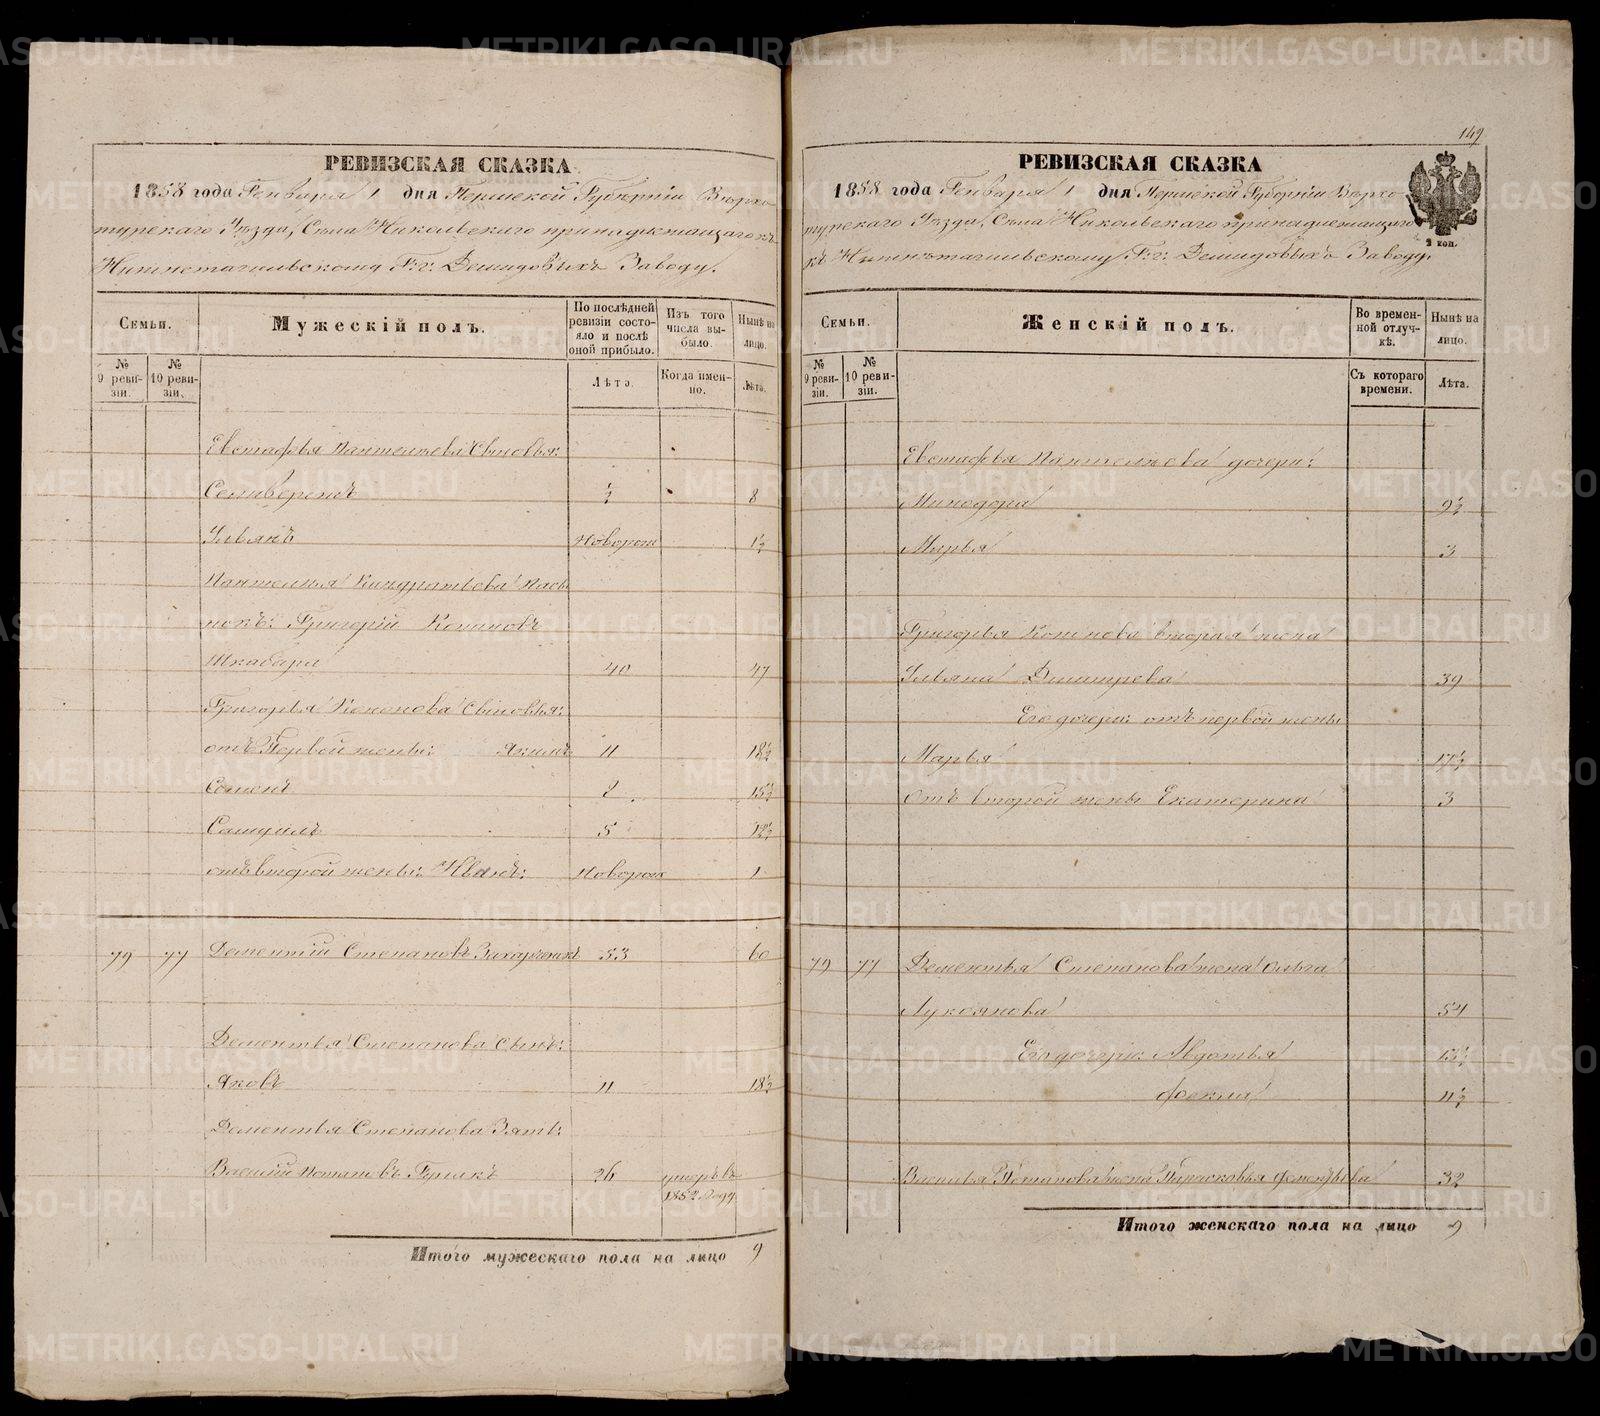 РЕВИЗСКАЯ СКАЗКА
1858 года Генваря 1 дня Пермской Губернiи Верхо-
турскаго Уѣзда, Села Никольскаго принадлежащаго къ
Нижнетагильскому Г.г. Демидовыхъ Заводу.
Семьи.
Мужескiй полъ.
По послѣдней ревизiи состояло и послѣ оной прибыло.
Изъ того числа выбыло.
Нынѣ на лицо.
№ 9 ревизiи.
№ 10 ревизiи.
Лѣта.
Когда именно.
Лѣта.
Евстафья Пантелѣева Сыновья:
Селиверстъ ½ 8
Ульянъ Новорож 1½
Пантелѣя Кондратьева Пасы-
нокъ: Григорiй Кононовъ
Шкабара 40 47
Григорья Кононова Сыновья:
отъ Первой жены: Якимъ 11 18½
Семенъ 2
Самуилъ 5 12½
отъ второй жены: Иванъ: Новорож 1
79 77 Дементiй Степановъ Захарченкъ 53 60
Дементья Степанова Сынъ:
Яковъ 11 18½
Дементья Степанова Зять:
Василiй Потаповъ 26 умеръ въ
1852 году
Итого мужескаго пола на лицо 9
149
РЕВИЗСКАЯ СКАЗКА
1858 года Генваря 1 дня Пермской Губернiи Верхо-
турскаго Уѣзда, Села Никольскаго принадлежащаго
къ Нижнетагильскому Г.г. Демидовыхъ Заводу.
2 коп.
Семьи.
Женскiй полъ.
Во временной отлучкѣ.
Нынѣ на лицо.
№ 9 ревизiи.
№ 10 ревизiи.
Съ котораго времени.
Лѣта.
Евстафья Пантелѣева дочери:
Минодора 9½
Марья 3
Григорья Кононова вторая жена
Ульяна Дмитрева 39
Его дочери: отъ первой жены
Марья 17½
Отъ второй жены Екатерина 3
79 77 Дементья Степанова жена Ольга
Лукоянова 54
Его дочери: Авдотья
Фекла 11½
Василья Потапова жена Парасковья 32
Итого женскаго пола на лицо 9
METRIKI.GASO-URAL.RU